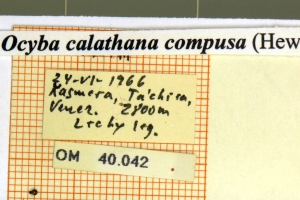 Ocyba calathana compusa (Hew
24-VI-1966
Kasmera, Ta'chira,
Venez. 2800m
Lichy leg.
OM 40.042 .